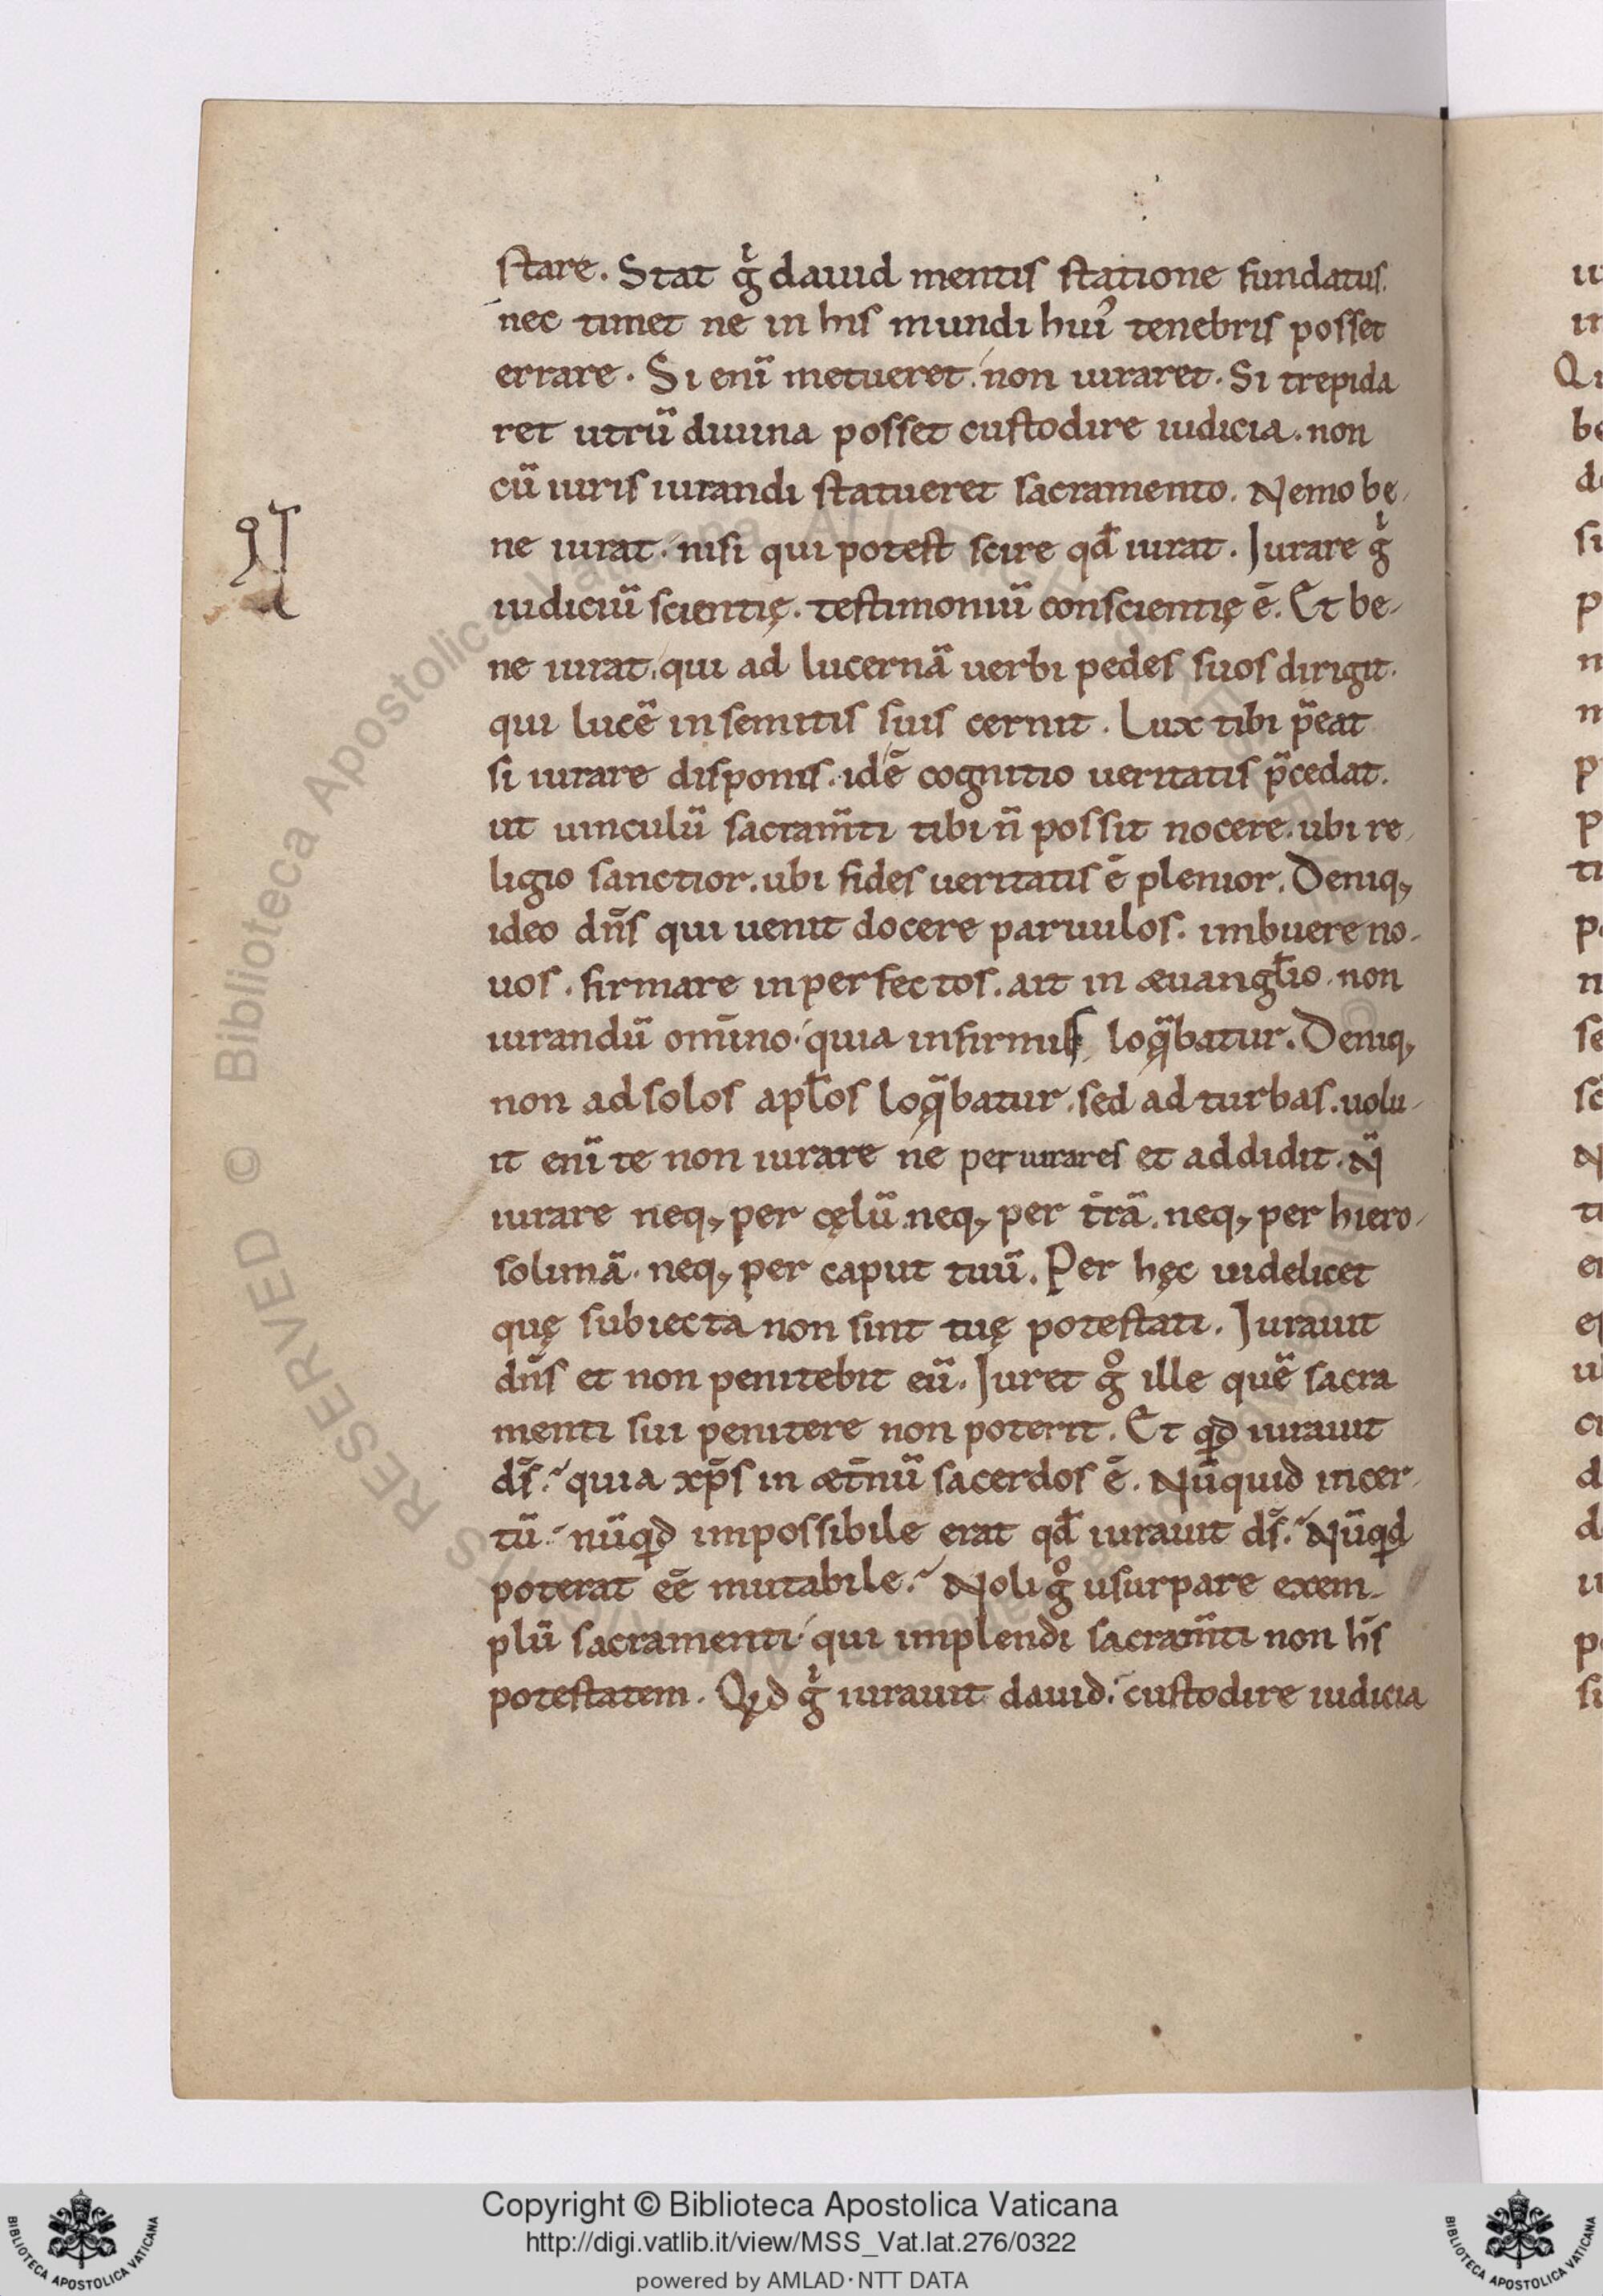 stare. Stat gͥ dauid mentis statione fundatus.
nec timet ne in his mundi hui᾽ tenebris posset
errare. Si enī metueret. non iuraret. Si trepida
ret utrū diuina posset custodire iudicia. non
cū iuris iurandi statueret sacramento. Nemo bę-
ne iurat. nisi qui potest scire qđ iurat. Iurare gͥ
iudiciū scientię. testimoniū conscientię ē. Et be-
ne iurat. qui ad lucernā uerbi pedes suos dirigit.
qui lucē in semitis suis cernit. Lux tibi p̄eat
si iurare disponis. idē cognitio ueritatis p̄cedat.
ut uinculū sacram̄ti tibi n̄ possit nocere. ubi re-
ligio sanctior. ubi fides ueritatis ē plenior. Deniq;
ideo dn̄s qui uenit docere paruulos. imbuere no-
uos. firmare inperfectos. ait in æuangl̄io. non
iurandū om̄ino. quia infirmis loq̄batur. Deniq;
non ad solos apl̄os loq̄batur. sed ad turbas. uolu-
it enī te non iurare ne periurares et addidit. N̄
iurare neq; per cęlū. neq; per t̄rā. neq; per hiero-
solimā. neq; per caput tuū. Per hęc uidelicet
quę subiecta non sint tuę potestati. Iurauit
dn̄s et non penitebit eū. Iuret gͦ ille quē sacra
menti sui penitere non poterit. Et qd iurauit
ds̄. quia xp̄s in æt̄nū sacerdos ē. Nūquid incer-
tū. nūqd impossibile erat qđ iurauit ds̄. Nūqd
poterat eē mutabile. Noli gͦ usurpare exem-
plū sacramenti. qui implendi sacram̄ti non hs̄
potestatem. Qd gͥ iurauit dauid. custodire iudicia
© Biblioteca Apostolica Vaticana
Copyright © Biblioteca Apostolica Vaticana
http://digi.vatlib.it/view/MSS_Vat.lat.276/0322
powered by AMLAD·NTT DATA
BIBLIOTECA APOSTOLICA VATICANA
BIBLIOTECA APOSTOLICA VATICANA